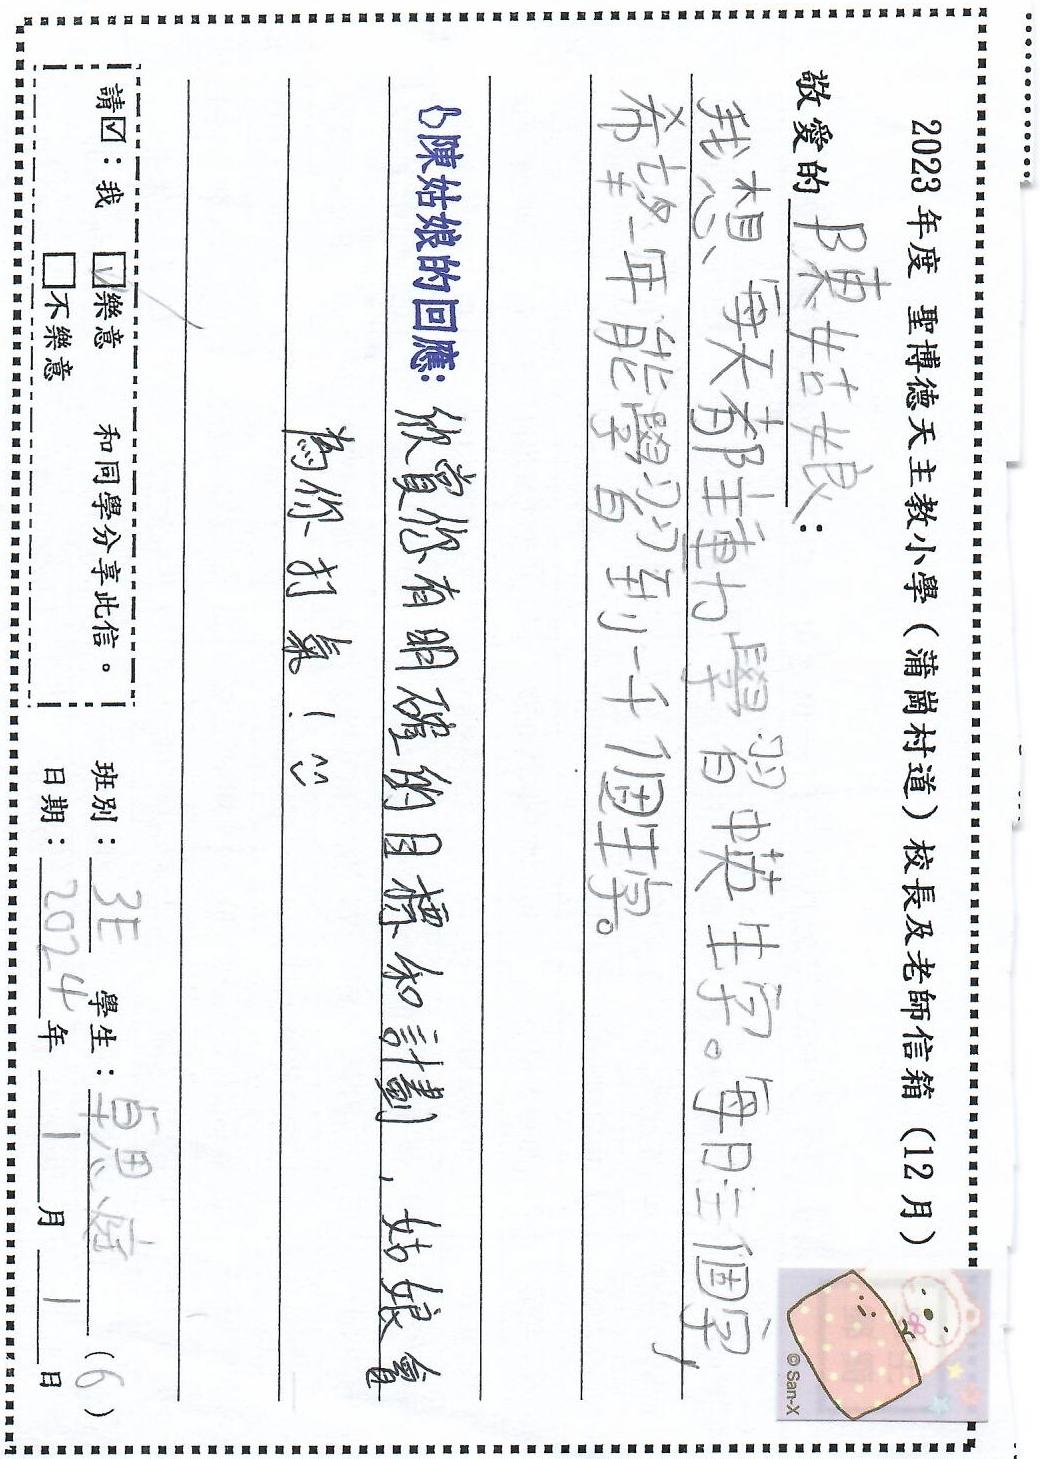 2023 年度 聖博德天主教小學（蒲崗村道）校長及老師信箱（12 月）
敬愛的 陳姑娘：
我想每天都主動學習中英生字。每日三個字，
希望一年能學習到一千個生字。
陳姑娘的回應：欣賞你有明確的目標和計劃，姑娘會
為你打氣！
請☑：我 ☑樂意 和同學分享此信。
□不樂意
班別：3E 學生：卓思庭（6）
日期：2024 年 1 月 1 日
© San-X